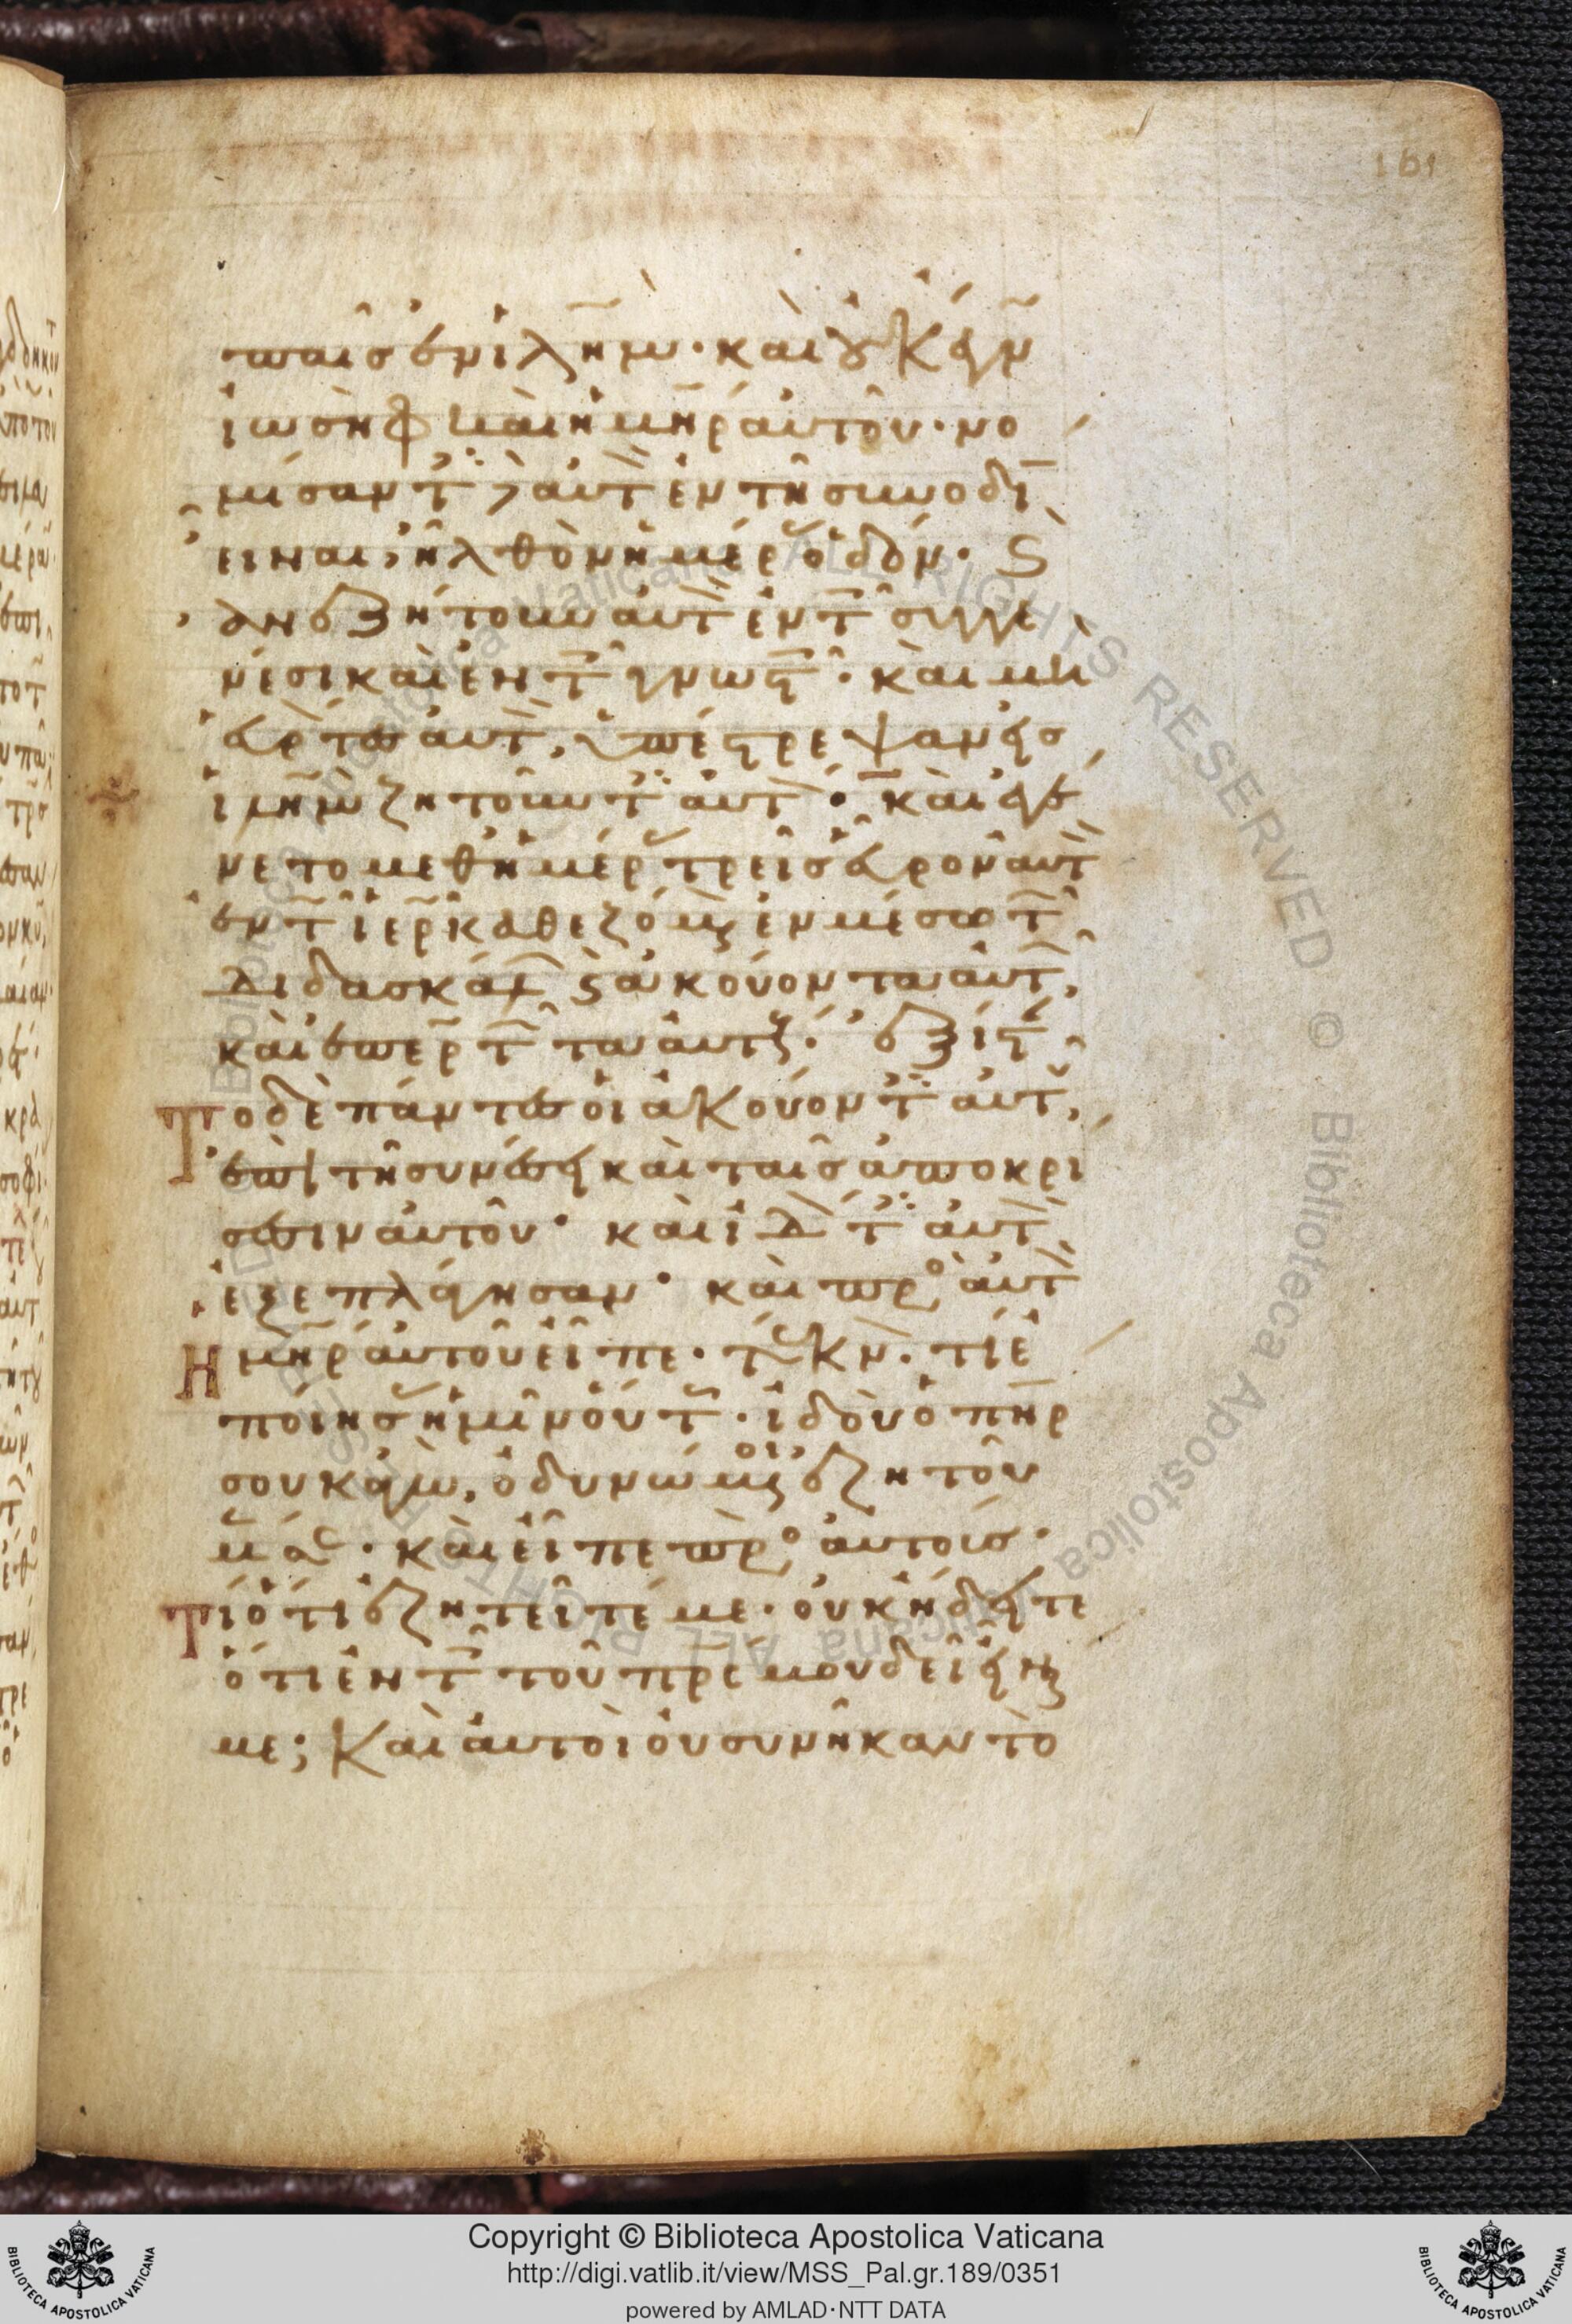 161
παῖς ἐν ἱλῆμ· καὶ οὐκ ἔγν
ἰωσὴφ καὶ ἡ μηρ αὐτοῦ· νο
μίσαντ δὲ αὐτ ἐν τῆ συνοδί
εἶναι, ἦλθον ἡμέρας ὁδόν· ϛ
ἀνεζήτουν αὐτ ἐν τ συγγε
νέσι καὶ ἐν τ γνωστ· καὶ μὴ
εὑρόντες αὐτ, ὑπέστρεψαν εἰς
ἱλημ ζητοῦντ αὐτ· καὶ ἐγέ
νετο μεθ ἡμέρ τρεῖς εὗρον αὐτ
ἐν τ ἱερ καθεζόμενον ἐν μέσω τ
διδασκάλ ϛ ἀκούοντα αὐτ,
καὶ ἐπερωτ τα αὐτούς· ἐξίστ
το δὲ πάντες οἱ ἀκούοντ αὐτ,
ἐπὶ τῆ συνέσει καὶ ταῖς ἀποκρί
σεσιν αὐτοῦ· καὶ ἰδ τ αὐτ
ἐξεπλάγησαν· καὶ πρὸς αὐτ
Η μηρ αὐτοῦ εἶπε· τέκν. τί ἐ
ποίησας ἡμῖν οὕτως· ἰδοὺ ὁ πηρ
σου κἀγὼ, ὀδυνώμενοι ἐζητοῦ
μέν σε· καὶ εἶπε πρὸς αὐτούς·
Τί ὅτι ἐζητεῖτέ με· οὐκ ἤδειτε
ὅτι ἐν τ τοῦ πρς μου δεῖ εἶναι
με; Καὶ αὐτοὶ οὐ συνῆκαν τὸ
Copyright © Biblioteca Apostolica Vaticana
http://digi.vatlib.it/view/MSS_Pal.gr.189/0351
powered by AMLAD·NTT DATA
BIBLIOTECA APOSTOLICA VATICANA
BIBLIOTECA APOSTOLICA VATICANA